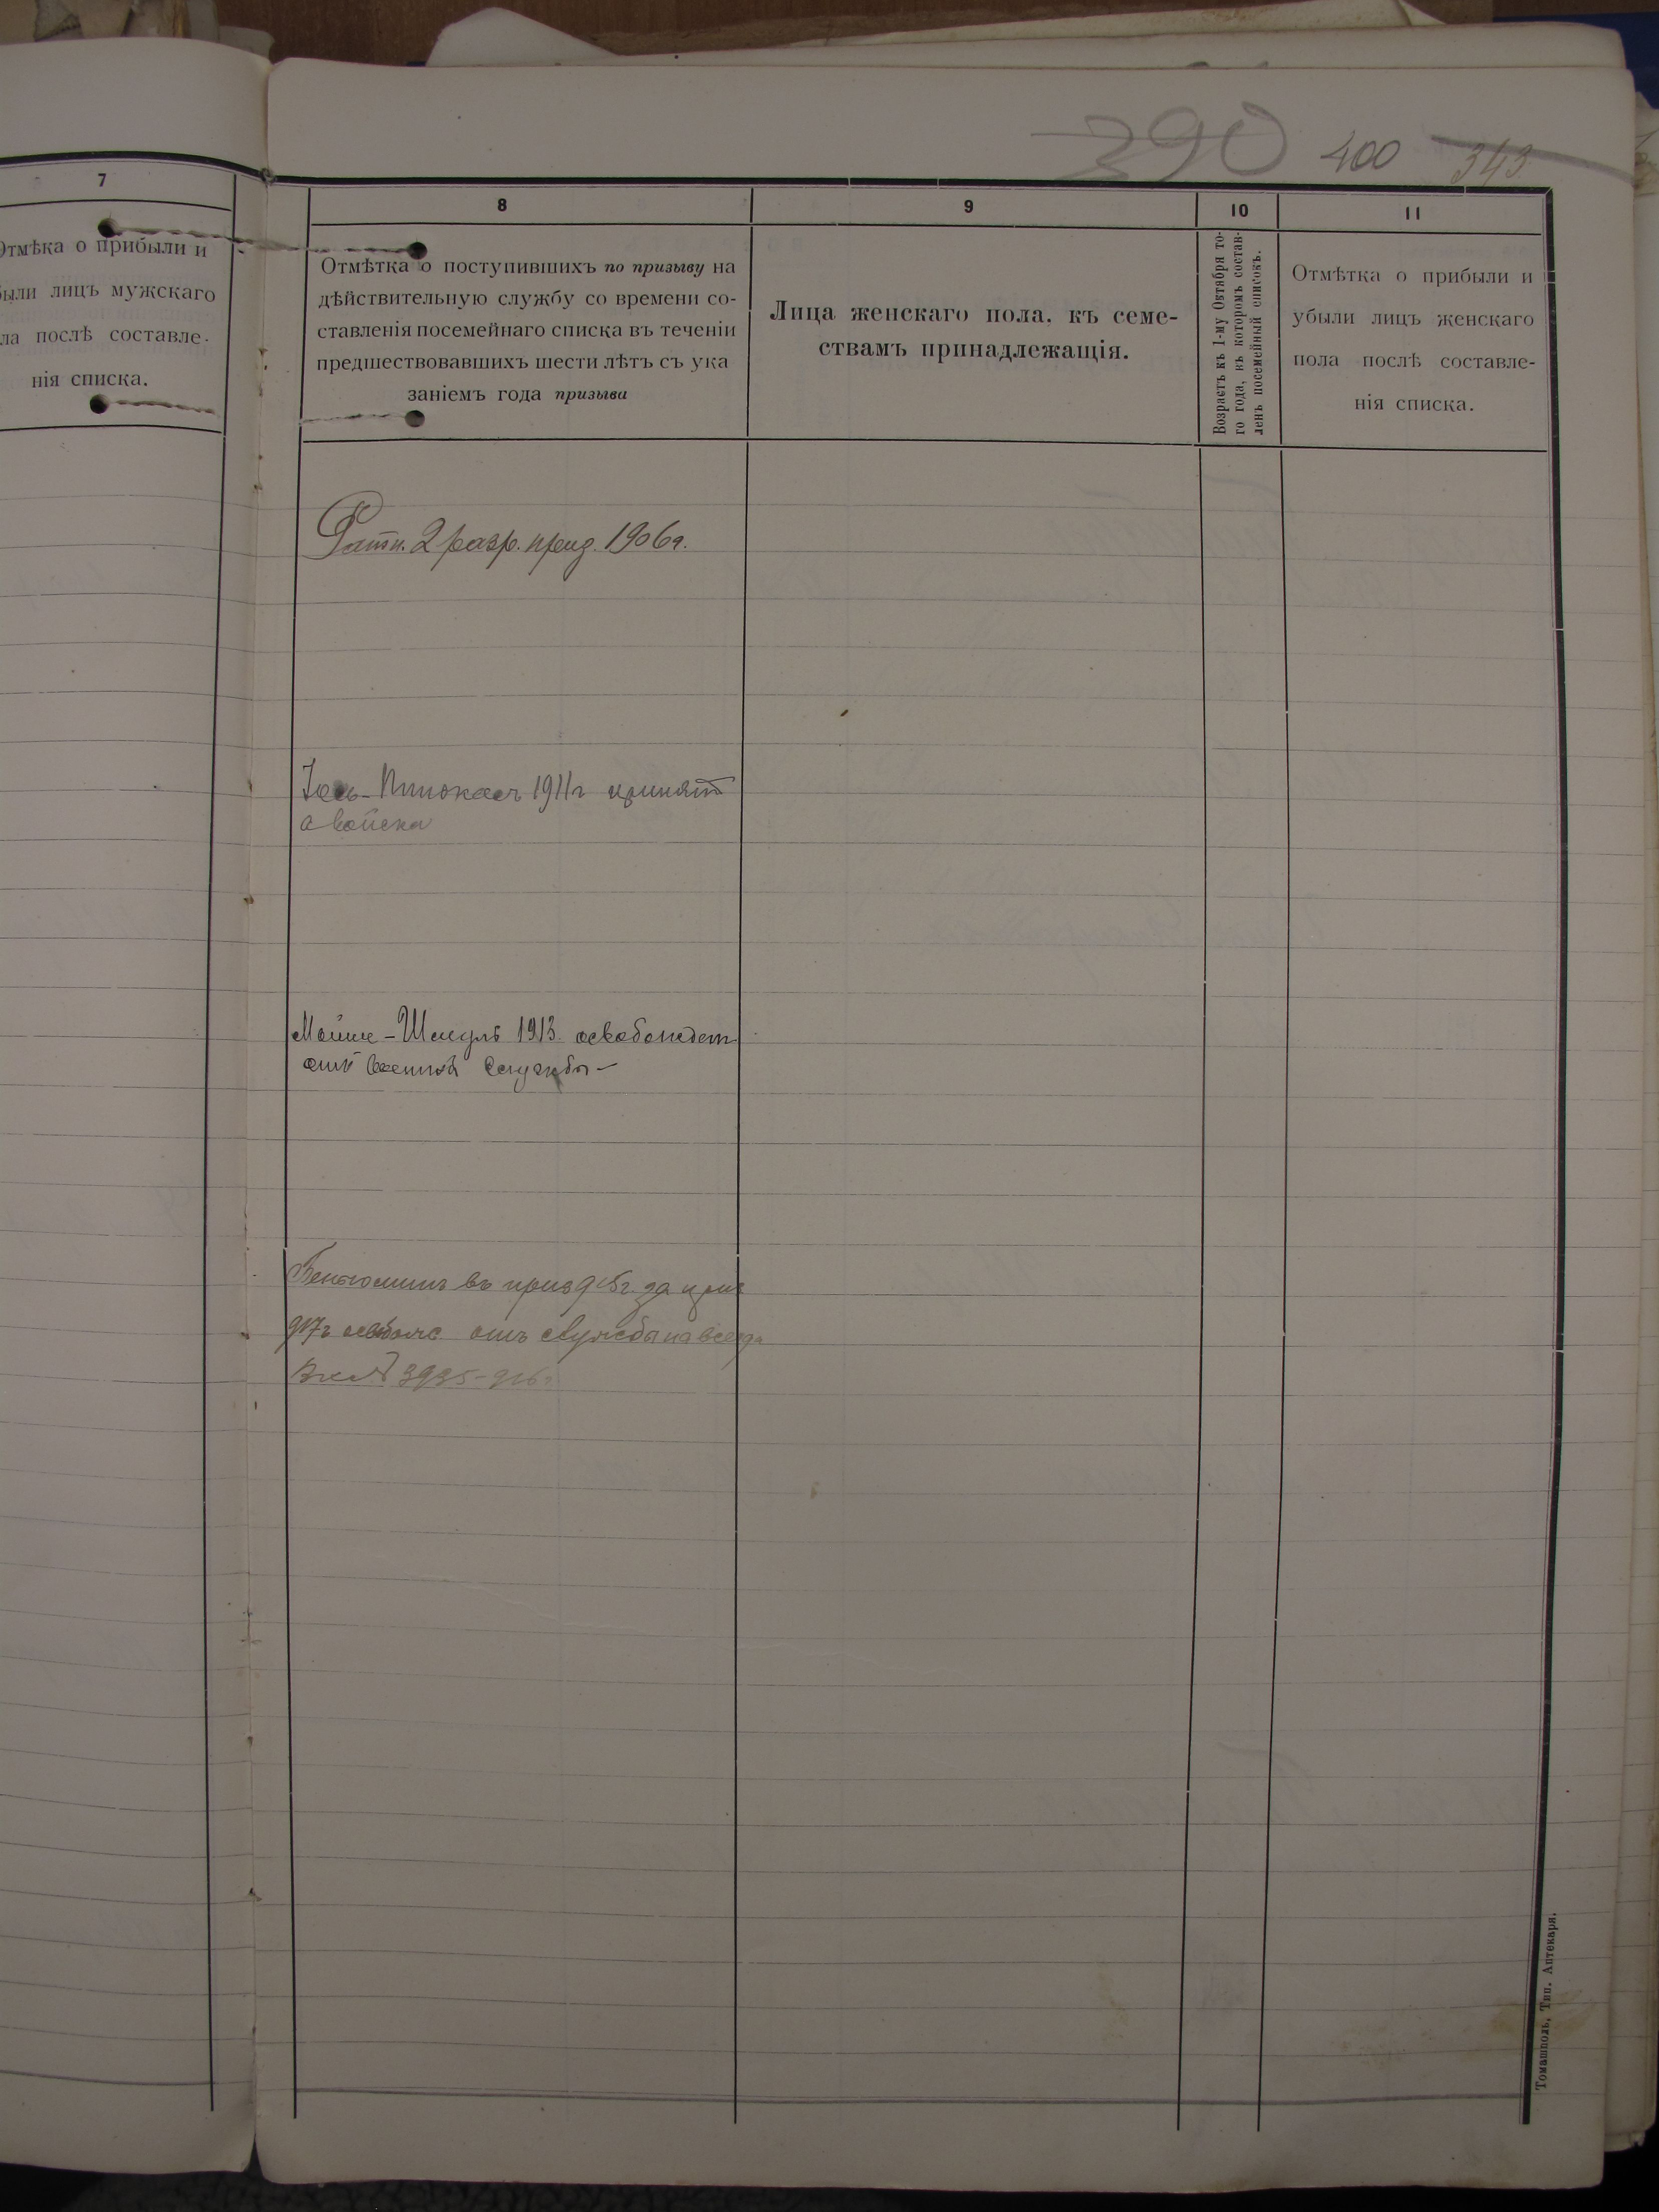 390 400 343
7
Отмѣка о прибыли и
были лицъ мужскаго
ла послѣ составле-
нія списка.
8
Отмѣтка о поступившихъ по призыву на
дѣйствительную службу со времени со-
ставленія посемейнаго списка въ теченіи
предшествовавшихъ шести лѣтъ съ ука
заніемъ года призыва
9
Лица женскаго пола, къ семе-
ствамъ принадлежащія.
10
Возрастъ къ 1-му Октября то-
го года, въ которомъ состав-
ленъ посемейный списокъ.
11
Отмѣтка о прибыли и
убыли лицъ женскаго
пола послѣ составле-
нія списка.
Ратн. 2 разр. приз. 1906 г.
1911 г принят
в войска
Мойше-Шмуль 1913. освобожден
отъ военной службы -
Беньоминъ въ приз 915 г. за приз
917 г отъ службы навсегда
3935-916 г
Томашполь, Тип. Аптекаря.